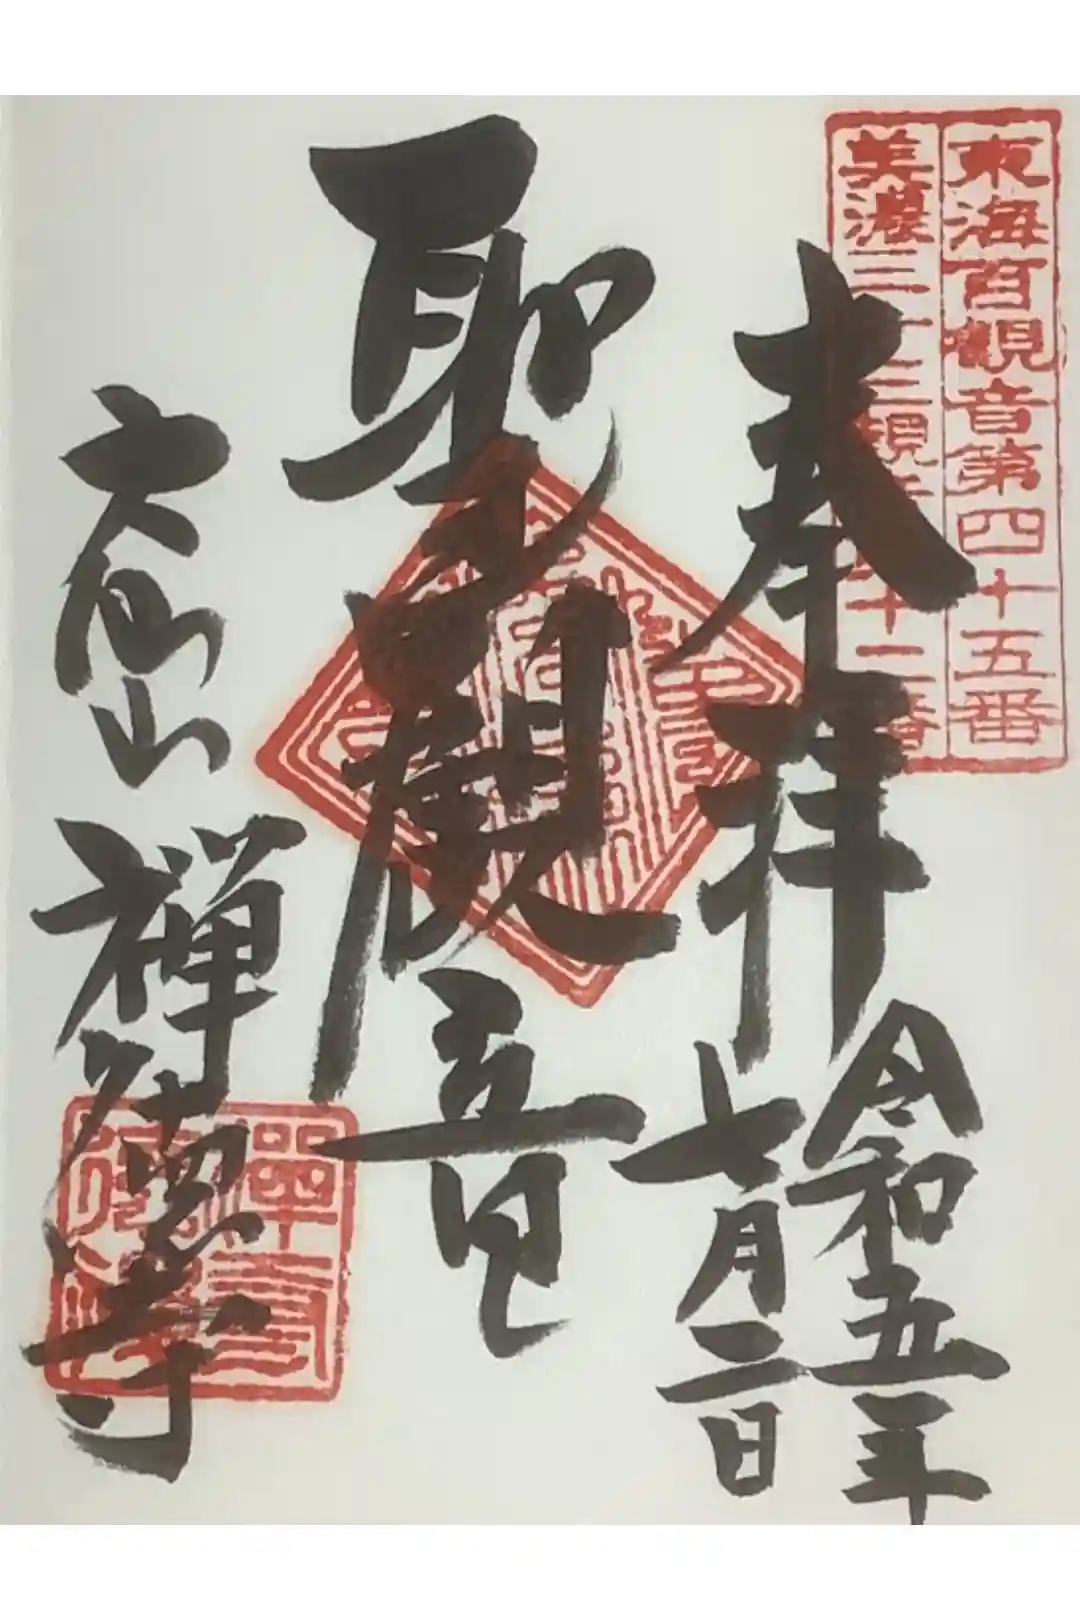 東海百観音第四十五番
美濃三十三観音十二番
奉拝
令和五年
七月二日
聖観音
大仙山
禅徳寺